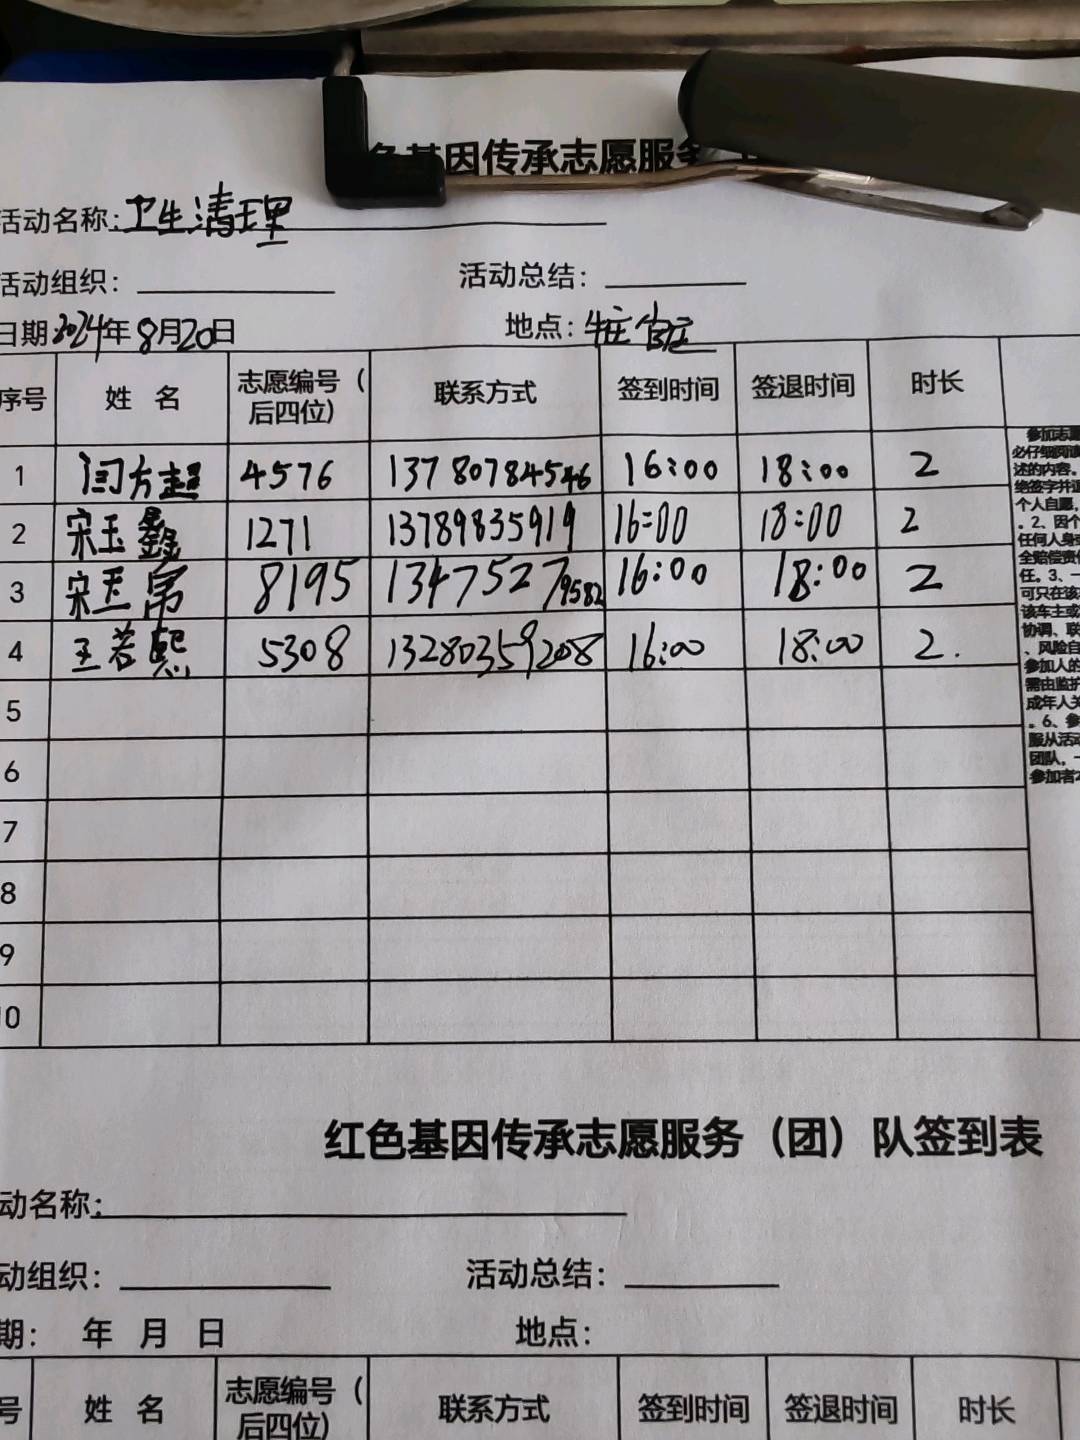 色基因传承志愿服务
活动名称:卫生清理
活动组织：
活动总结：
日期2024年8月20日
地点：
序号 姓 名 志愿编号（后四位） 联系方式 签到时间 签退时间 时长
1 闫方超 4576 13780784546 16:00 18:00 2
2 宋玉鑫 1271 13789835919 16:00 18:00 2
3 宋玉帛 8195 13475279582 16:00 18:00 2
4 王若熙 5308 13280359208 16:00 18:00 2.
5
6
7
8
9
10
参加志愿
必仔细阅读
述的内容。
绝签字并退
个人自愿，
。2、因个
任何人身或
全赔偿责任
任。3、一
可只在该
该车主或
协调、联
、风险自
参加人的
需由监护
成年人关
。6、参
服从活动
团队，一
参加者
红色基因传承志愿服务（团）队签到表
动名称：
动组织：
活动总结：
期： 年 月 日
地点：
号 姓 名 志愿编号（后四位） 联系方式 签到时间 签退时间 时长